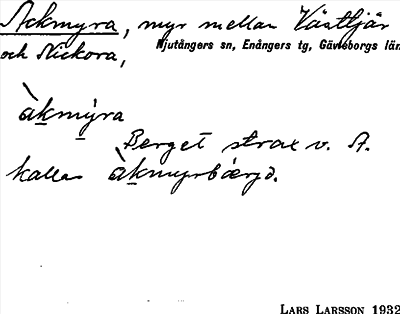 Ackmyra, myr mellan Västtjär
Njutångers sn, Enångers tg, Gävleborgs län
och Nickora,
àkmýra
Berget strax v. A.
kallas àkmyrbærjə.
LARS LARSSON 1932